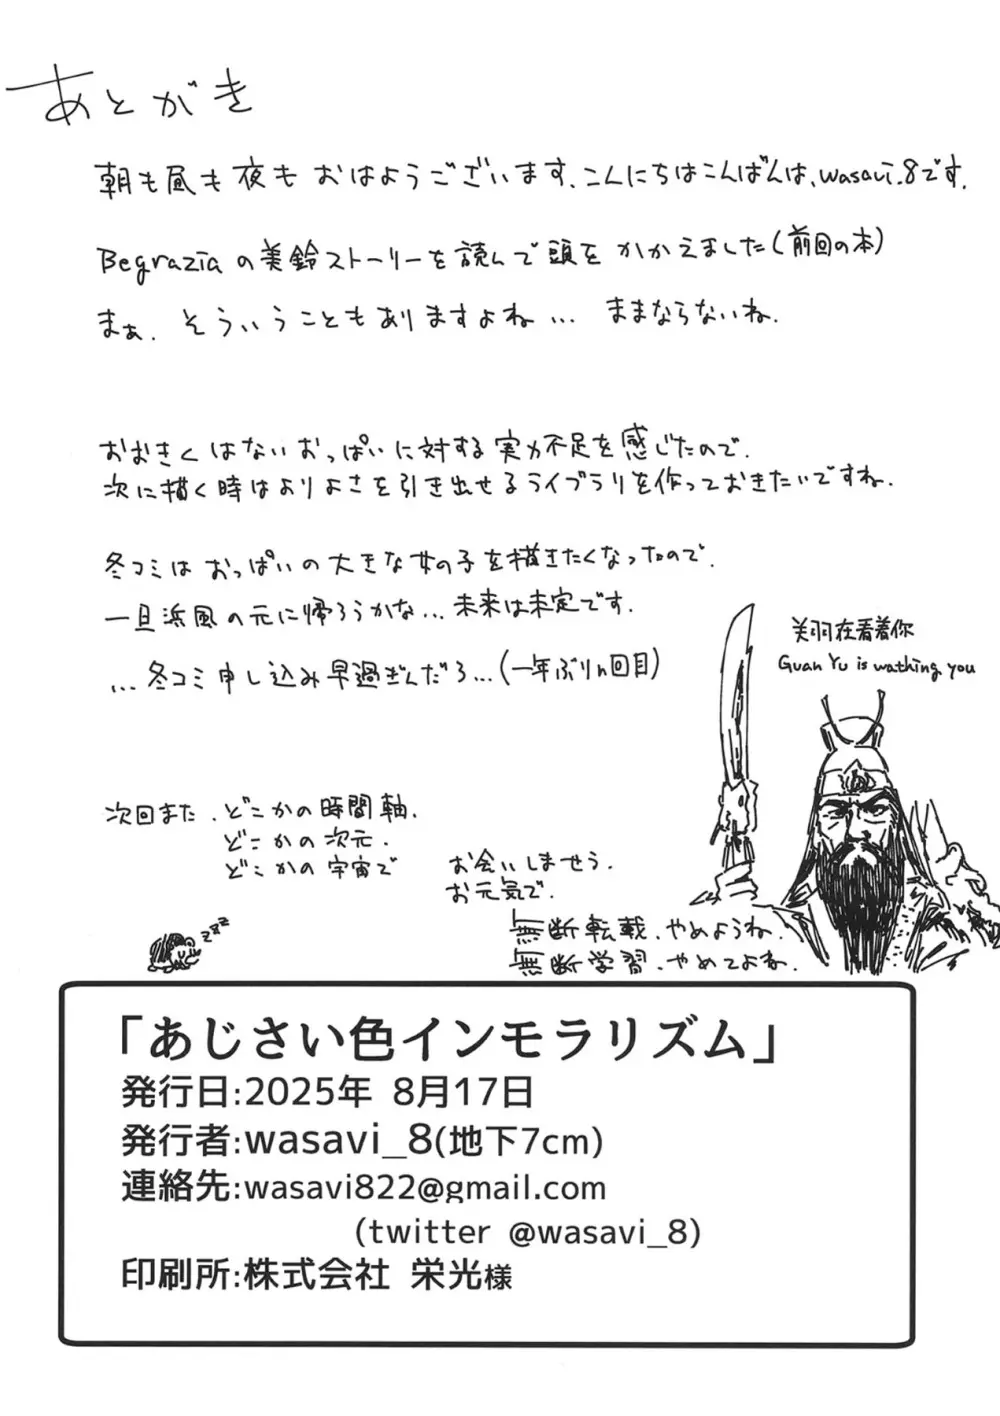 あとがき
朝も昼も夜もおはようございます、こんにちはこんばんは、wasavi_8です。
Begraziaの美鈴ストーリーを読んで頭をかかえました(前回の本)
まぁ、そういうこともありますよね… ままならないね。
おおきくはないおっぱいに対する実力不足を感じたので、
次に描く時はよりよさを引き出せるライブラリを作っておきたいですね。
冬コミはおっぱいの大きな女の子を描きたくなったので、
一旦浜風の元に帰ろうかな… 未来は未定です。
…冬コミ申し込み早過ぎんだろ…(一年ぶりn回目)
关羽在看着你
Guan Yu is wathing you
次回また、どこかの時間軸、
どこかの次元、
どこかの宇宙で
お会いしませう。
お元気で。
無断転載、やめようね。
無断学習、やめてよね。
zzz
「あじさい色インモラリズム」
発行日:2025年 8月17日
発行者:wasavi_8(地下7cm)
連絡先:wasavi822@gmail.com
(twitter @wasavi_8)
印刷所:株式会社 栄光様